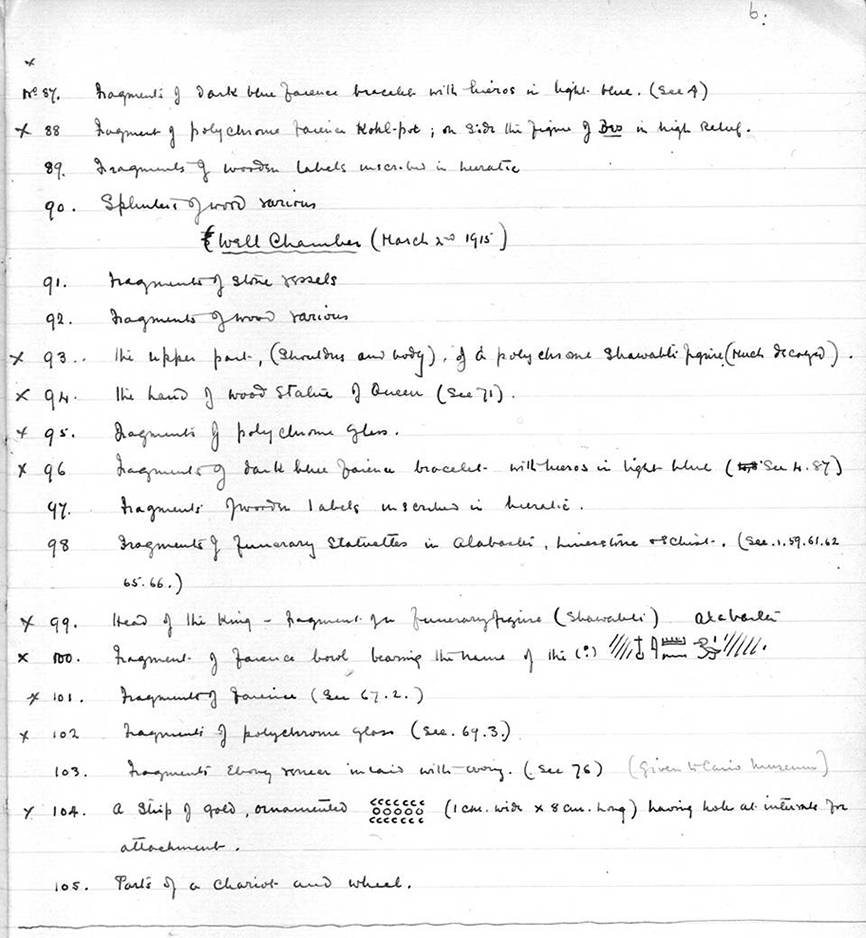 6.
x
No 87. Fragments of dark blue faience bracelet with hieros in light blue. (See 4)
x 88 Fragment of polychrome faience Kohl-pot ; on side the figure of Bes in high Relief.
89. Fragments of wooden labels inscribed in hieratic
90. Splinters of wood various
(Well Chamber (March 2nd 1915)
91. Fragments of stone vessels
92. Fragments of wood various
x 93.. The upper part, (Shoulders and body), of a polychrome Shawabti figure, (Much decayed).
x 94. The hand of wood Statue of Queen (See 71).
x 95. Fragments of polychrome glass.
x 96 Fragments of dark blue faience bracelet with hieros in light blue (See 4. 87)
97. Fragments of wooden labels inscribed in hieratic.
98 Fragments of funerary Statuettes in Alabaster, Limestone & Schist. (See. 1. 59. 61. 62
65. 66.)
x 99. Head of the King – fragment of a funerary figure (Shawabti) alabaster
x 100. Fragment of faience bowl bearing the name of the (?)
x 101. Fragments of faience (See 67. 2.)
x 102 Fragments of polychrome glass (See. 69. 3.)
103. Fragments Ebony veneer inlaid with ivory. (See 76) (Given to Cairo Museum)
x 104. A Strip of gold, ornamented (1 cm. wide x 8 cm. long) having hole at intervals for
attachment.
105. Parts of a chariot and wheel.